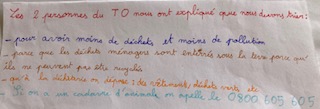 Les 2 personnes du TO nous ont expliqué que nous devons trier :
- pour avoir moins de déchets et moins de pollution
- parce que les déchets ménagers sont enterrés sous la terre parce qu'
ils ne peuvent pas être recyclés
- qu'à la déchèterie on dépose : des vêtements, déchets verts etc
- Si on a un cadavre d'animale on apelle le 0800 505 605